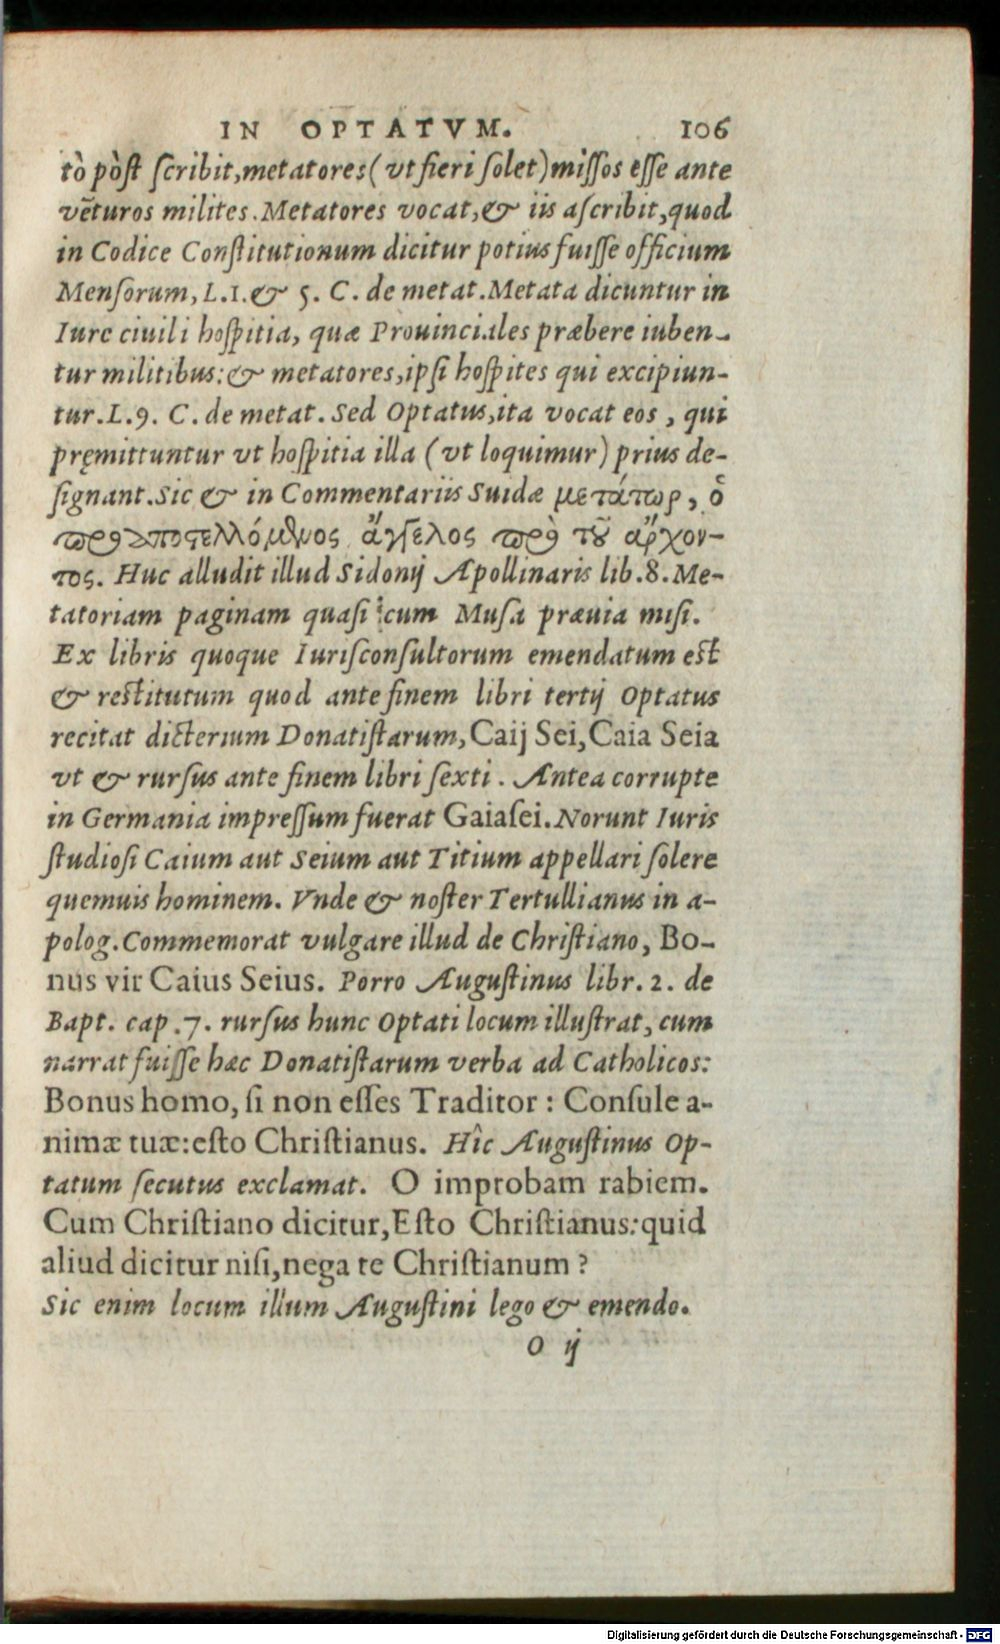 IN OPTATVM. 106
tò pòſt ſcribit, metatores (vt fieri ſolet) miſſos eſſe ante
vẽturos milites. Metatores vocat, & iis aſcribit, quod
in Codice Conſtitutionum dicitur potius fuiſſe officium
Menſorum, L.1. & 5. C. de metat. Metata dicuntur in
Iure ciuili hoſpitia, quæ Prouinciales præbere iuben-
tur militibus: & metatores, ipſi hoſpites qui excipiun-
tur. L. 9. C. de metat. Sed Optatus, ita vocat eos, qui
pręmittuntur vt hoſpitia illa (vt loquimur) prius de-
ſignant. Sic & in Commentariis Suidæ μετάτωρ, ὁ
προαποστελλόμενος ἄγγελος πρὸ τοῦ ἄρχον-
τος. Huc alludit illud Sidonij Apollinaris lib. 8. Me-
tatoriam paginam quaſi cum Muſa præuia miſi.
Ex libris quoque Iuriſconſultorum emendatum eſt
& reſtitutum quod ante finem libri tertij Optatus
recitat dicterium Donatiſtarum, Caij Sei, Caia Seia
vt & rurſus ante finem libri ſexti. Antea corrupte
in Germania impreſſum fuerat Gaiaſei. Norunt Iuris
ſtudioſi Caium aut Seium aut Titium appellari ſolere
quemuis hominem. Vnde & noſter Tertullianus in a-
polog. Commemorat vulgare illud de Chriſtiano, Bo-
nus vir Caius Seius. Porro Auguſtinus libr. 2. de
Bapt. cap. 7. rurſus hunc Optati locum illuſtrat, cum
narrat fuiſſe hæc Donatiſtarum verba ad Catholicos:
Bonus homo, ſi non eſſes Traditor: Conſule a-
nimæ tuæ: eſto Chriſtianus. Hîc Auguſtinus Op-
tatum ſecutus exclamat. O improbam rabiem.
Cum Chriſtiano dicitur, Eſto Chriſtianus: quid
aliud dicitur niſi, nega te Chriſtianum?
Sic enim locum illum Auguſtini lego & emendo.
O ij
Digitalisierung gefördert durch die Deutsche Forschungsgemeinschaft - DFG